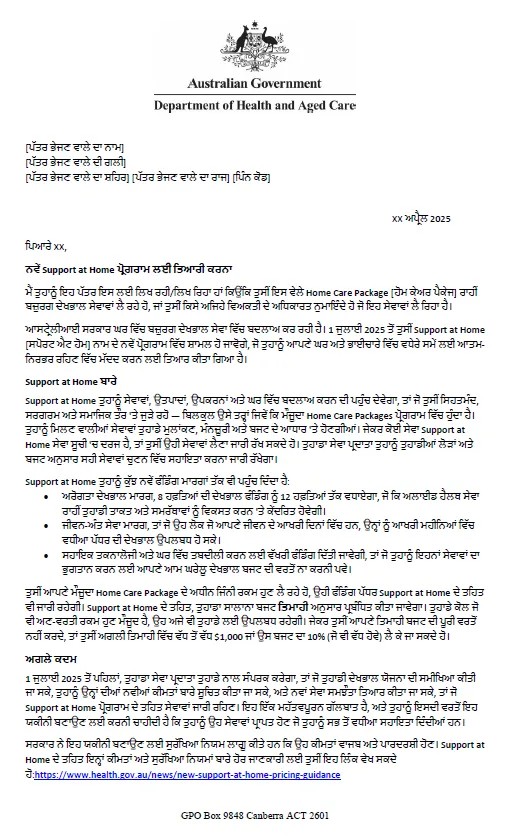 Australian Government
Department of Health and Aged Care
[ਪੱਤਰ ਭੇਜਣ ਵਾਲੇ ਦਾ ਨਾਮ]
[ਪੱਤਰ ਭੇਜਣ ਵਾਲੇ ਦੀ ਗਲੀ]
[ਪੱਤਰ ਭੇਜਣ ਵਾਲੇ ਦਾ ਸ਼ਹਿਰ] [ਪੱਤਰ ਭੇਜਣ ਵਾਲੇ ਦਾ ਰਾਜ] [ਪਿੰਨ ਕੋਡ]
XX ਅਪ੍ਰੈਲ 2025
ਪਿਆਰੇ XX,
ਨਵੇਂ Support at Home ਪ੍ਰੋਗਰਾਮ ਲਈ ਤਿਆਰੀ ਕਰਨਾ
ਮੈਂ ਤੁਹਾਨੂੰ ਇਹ ਪੱਤਰ ਇਸ ਲਈ ਲਿਖ ਰਹੀ/ਲਿਖ ਰਿਹਾ ਹਾਂ ਕਿਉਂਕਿ ਤੁਸੀਂ ਇਸ ਵੇਲੇ Home Care Package [ਹੋਮ ਕੇਅਰ ਪੈਕੇਜ] ਰਾਹੀਂ
ਬਜ਼ੁਰਗ ਦੇਖਭਾਲ ਸੇਵਾਵਾਂ ਲੈ ਰਹੇ ਹੋ, ਜਾਂ ਤੁਸੀਂ ਕਿਸੇ ਅਜਿਹੇ ਵਿਅਕਤੀ ਦੇ ਅਧਿਕਾਰਤ ਨੁਮਾਇੰਦੇ ਹੋ ਜੋ ਇਹ ਸੇਵਾਵਾਂ ਲੈ ਰਿਹਾ ਹੈ।
ਆਸਟ੍ਰੇਲੀਆਈ ਸਰਕਾਰ ਘਰ ਵਿੱਚ ਬਜ਼ੁਰਗ ਦੇਖਭਾਲ ਸੇਵਾ ਵਿੱਚ ਬਦਲਾਅ ਕਰ ਰਹੀ ਹੈ। 1 ਜੁਲਾਈ 2025 ਤੋਂ ਤੁਸੀਂ Support at Home
[ਸਪੋਰਟ ਐਟ ਹੋਮ] ਨਾਮ ਦੇ ਨਵੇਂ ਪ੍ਰੋਗਰਾਮ ਵਿੱਚ ਸ਼ਾਮਲ ਹੋ ਜਾਵੋਗੇ, ਜੋ ਤੁਹਾਨੂੰ ਆਪਣੇ ਘਰ ਅਤੇ ਭਾਈਚਾਰੇ ਵਿੱਚ ਵਧੇਰੇ ਸਮੇਂ ਲਈ ਆਤਮ-
ਨਿਰਭਰ ਰਹਿਣ ਵਿੱਚ ਮੱਦਦ ਕਰਨ ਲਈ ਤਿਆਰ ਕੀਤਾ ਗਿਆ ਹੈ।
Support at Home ਬਾਰੇ
Support at Home ਤੁਹਾਨੂੰ ਸੇਵਾਵਾਂ, ਉਤਪਾਦਾਂ, ਉਪਕਰਨਾਂ ਅਤੇ ਘਰ ਵਿੱਚ ਬਦਲਾਅ ਕਰਨ ਦੀ ਪਹੁੰਚ ਦੇਵੇਗਾ, ਤਾਂ ਜੋ ਤੁਸੀਂ ਸਿਹਤਮੰਦ,
ਸਰਗਰਮ ਅਤੇ ਸਮਾਜਿਕ ਤੌਰ 'ਤੇ ਜੁੜੇ ਰਹੋ — ਬਿਲਕੁਲ ਉਸੇ ਤਰ੍ਹਾਂ ਜਿਵੇਂ ਕਿ ਮੌਜੂਦਾ Home Care Packages ਪ੍ਰੋਗਰਾਮ ਵਿੱਚ ਹੁੰਦਾ ਹੈ।
ਤੁਹਾਨੂੰ ਮਿਲਣ ਵਾਲੀਆਂ ਸੇਵਾਵਾਂ ਤੁਹਾਡੇ ਮੁਲਾਂਕਣ, ਮੰਨਜ਼ੂਰੀ ਅਤੇ ਬਜਟ ਦੇ ਆਧਾਰ 'ਤੇ ਹੋਣਗੀਆਂ। ਜੇਕਰ ਕੋਈ ਸੇਵਾ Support at
Home ਸੇਵਾ ਸੂਚੀ 'ਚ ਦਰਜ ਹੈ, ਤਾਂ ਤੁਸੀਂ ਉਹੀ ਸੇਵਾਵਾਂ ਲੈਣਾ ਜਾਰੀ ਰੱਖ ਸਕਦੇ ਹੋ। ਤੁਹਾਡਾ ਸੇਵਾ ਪ੍ਰਦਾਤਾ ਤੁਹਾਨੂੰ ਤੁਹਾਡੀਆਂ ਲੋੜਾਂ ਅਤੇ
ਬਜਟ ਅਨੁਸਾਰ ਸਹੀ ਸੇਵਾਵਾਂ ਚੁਣਨ ਵਿੱਚ ਸਹਾਇਤਾ ਕਰਨਾ ਜਾਰੀ ਰੱਖੇਗਾ।
Support at Home ਤੁਹਾਨੂੰ ਕੁੱਝ ਨਵੇਂ ਫੰਡਿੰਗ ਮਾਰਗਾਂ ਤੱਕ ਵੀ ਪਹੁੰਚ ਦਿੰਦਾ ਹੈ:
• ਅਰੋਗਤਾ ਦੇਖਭਾਲ ਮਾਰਗ, 8 ਹਫ਼ਤਿਆਂ ਦੀ ਦੇਖਭਾਲ ਫੰਡਿੰਗ ਨੂੰ 12 ਹਫ਼ਤਿਆਂ ਤੱਕ ਵਧਾਏਗਾ, ਜੋ ਕਿ ਅਲਾਈਡ ਹੈਲਥ ਸੇਵਾ
ਰਾਹੀਂ ਤੁਹਾਡੀ ਤਾਕਤ ਅਤੇ ਸਮਰੱਥਾਵਾਂ ਨੂੰ ਵਿਕਸਤ ਕਰਨ 'ਤੇ ਕੇਂਦਰਿਤ ਹੋਵੇਗੀ।
• ਜੀਵਨ-ਅੰਤ ਸੇਵਾ ਮਾਰਗ, ਤਾਂ ਜੋ ਉਹ ਲੋਕ ਜੋ ਆਪਣੇ ਜੀਵਨ ਦੇ ਆਖਰੀ ਦਿਨਾਂ ਵਿੱਚ ਹਨ, ਉਨ੍ਹਾਂ ਨੂੰ ਆਖਰੀ ਮਹੀਨਿਆਂ ਵਿੱਚ
ਵਧੀਆ ਪੱਧਰ ਦੀ ਦੇਖਭਾਲ ਉਪਲਬਧ ਹੋ ਸਕੇ।
• ਸਹਾਇਕ ਤਕਨਾਲੋਜੀ ਅਤੇ ਘਰ ਵਿੱਚ ਤਬਦੀਲੀ ਕਰਨ ਲਈ ਵੱਖਰੀ ਫੰਡਿੰਗ ਦਿੱਤੀ ਜਾਵੇਗੀ, ਤਾਂ ਜੋ ਤੁਹਾਨੂੰ ਇਹਨਾਂ ਸੇਵਾਵਾਂ ਦਾ
ਭੁਗਤਾਨ ਕਰਨ ਲਈ ਆਪਣੇ ਆਮ ਘਰੇਲੂ ਦੇਖਭਾਲ ਬਜਟ ਦੀ ਵਰਤੋਂ ਨਾ ਕਰਨੀ ਪਵੇ।
ਤੁਸੀਂ ਆਪਣੇ ਮੌਜੂਦਾ Home Care Package ਦੇ ਅਧੀਨ ਜਿੰਨੀ ਰਕਮ ਹੁਣ ਲੈ ਰਹੇ ਹੋ, ਉਹੀ ਫੰਡਿੰਗ ਪੱਧਰ Support at Home ਦੇ ਤਹਿਤ
ਵੀ ਜਾਰੀ ਰਹੇਗੀ। Support at Home ਦੇ ਤਹਿਤ, ਤੁਹਾਡਾ ਸਾਲਾਨਾ ਬਜਟ ਤਿਮਾਹੀ ਅਨੁਸਾਰ ਪ੍ਰਬੰਧਿਤ ਕੀਤਾ ਜਾਵੇਗਾ। ਤੁਹਾਡੇ ਕੋਲ ਜੋ
ਵੀ ਅਣ-ਵਰਤੀ ਰਕਮ ਹੁਣ ਮੌਜੂਦ ਹੈ, ਉਹ ਅਜੇ ਵੀ ਤੁਹਾਡੇ ਲਈ ਉਪਲਬਧ ਰਹੇਗੀ। ਜੇਕਰ ਤੁਸੀਂ ਆਪਣੇ ਤਿਮਾਹੀ ਬਜਟ ਦੀ ਪੂਰੀ ਵਰਤੋਂ
ਨਹੀਂ ਕਰਦੇ, ਤਾਂ ਤੁਸੀਂ ਅਗਲੀ ਤਿਮਾਹੀ ਵਿੱਚ ਵੱਧ ਤੋਂ ਵੱਧ $1,000 ਜਾਂ ਉਸ ਬਜਟ ਦਾ 10% (ਜੋ ਵੀ ਵੱਧ ਹੋਵੇ) ਲੈ ਕੇ ਜਾ ਸਕਦੇ ਹੋ।
ਅਗਲੇ ਕਦਮ
1 ਜੁਲਾਈ 2025 ਤੋਂ ਪਹਿਲਾਂ, ਤੁਹਾਡਾ ਸੇਵਾ ਪ੍ਰਦਾਤਾ ਤੁਹਾਡੇ ਨਾਲ ਸੰਪਰਕ ਕਰੇਗਾ, ਤਾਂ ਜੋ ਤੁਹਾਡੀ ਦੇਖਭਾਲ ਯੋਜਨਾ ਦੀ ਸਮੀਖਿਆ ਕੀਤੀ
ਜਾ ਸਕੇ, ਤੁਹਾਨੂੰ ਉਨ੍ਹਾਂ ਦੀਆਂ ਨਵੀਆਂ ਕੀਮਤਾਂ ਬਾਰੇ ਸੂਚਿਤ ਕੀਤਾ ਜਾ ਸਕੇ, ਅਤੇ ਨਵਾਂ ਸੇਵਾ ਸਮਝੌਤਾ ਤਿਆਰ ਕੀਤਾ ਜਾ ਸਕੇ, ਤਾਂ ਜੋ
Support at Home ਪ੍ਰੋਗਰਾਮ ਦੇ ਤਹਿਤ ਸੇਵਾਵਾਂ ਜਾਰੀ ਰਹਿਣ। ਇਹ ਇੱਕ ਮਹੱਤਵਪੂਰਨ ਗੱਲਬਾਤ ਹੈ, ਅਤੇ ਤੁਹਾਨੂੰ ਇਸਦੀ ਵਰਤੋਂ ਇਹ
ਯਕੀਨੀ ਬਣਾਉਣ ਲਈ ਕਰਨੀ ਚਾਹੀਦੀ ਹੈ ਕਿ ਤੁਹਾਨੂੰ ਉਹ ਸੇਵਾਵਾਂ ਪ੍ਰਾਪਤ ਹੋਣ ਜੋ ਤੁਹਾਨੂੰ ਸਭ ਤੋਂ ਵਧੀਆ ਸਹਾਇਤਾ ਦਿੰਦੀਆਂ ਹਨ।
ਸਰਕਾਰ ਨੇ ਇਹ ਯਕੀਨੀ ਬਣਾਉਣ ਲਈ ਸੁਰੱਖਿਆ ਨਿਯਮ ਲਾਗੂ ਕੀਤੇ ਹਨ ਕਿ ਉਹ ਕੀਮਤਾਂ ਵਾਜਬ ਅਤੇ ਪਾਰਦਰਸ਼ੀ ਹੋਣ। Support at
Home ਦੇ ਤਹਿਤ ਇਨ੍ਹਾਂ ਕੀਮਤਾਂ ਅਤੇ ਸੁਰੱਖਿਆ ਨਿਯਮਾਂ ਬਾਰੇ ਹੋਰ ਜਾਣਕਾਰੀ ਲਈ ਤੁਸੀਂ ਇਹ ਲਿੰਕ ਵੇਖ ਸਕਦੇ
ਹੋ:https://www.health.gov.au/news/new-support-at-home-pricing-guidance
GPO Box 9848 Canberra ACT 2601